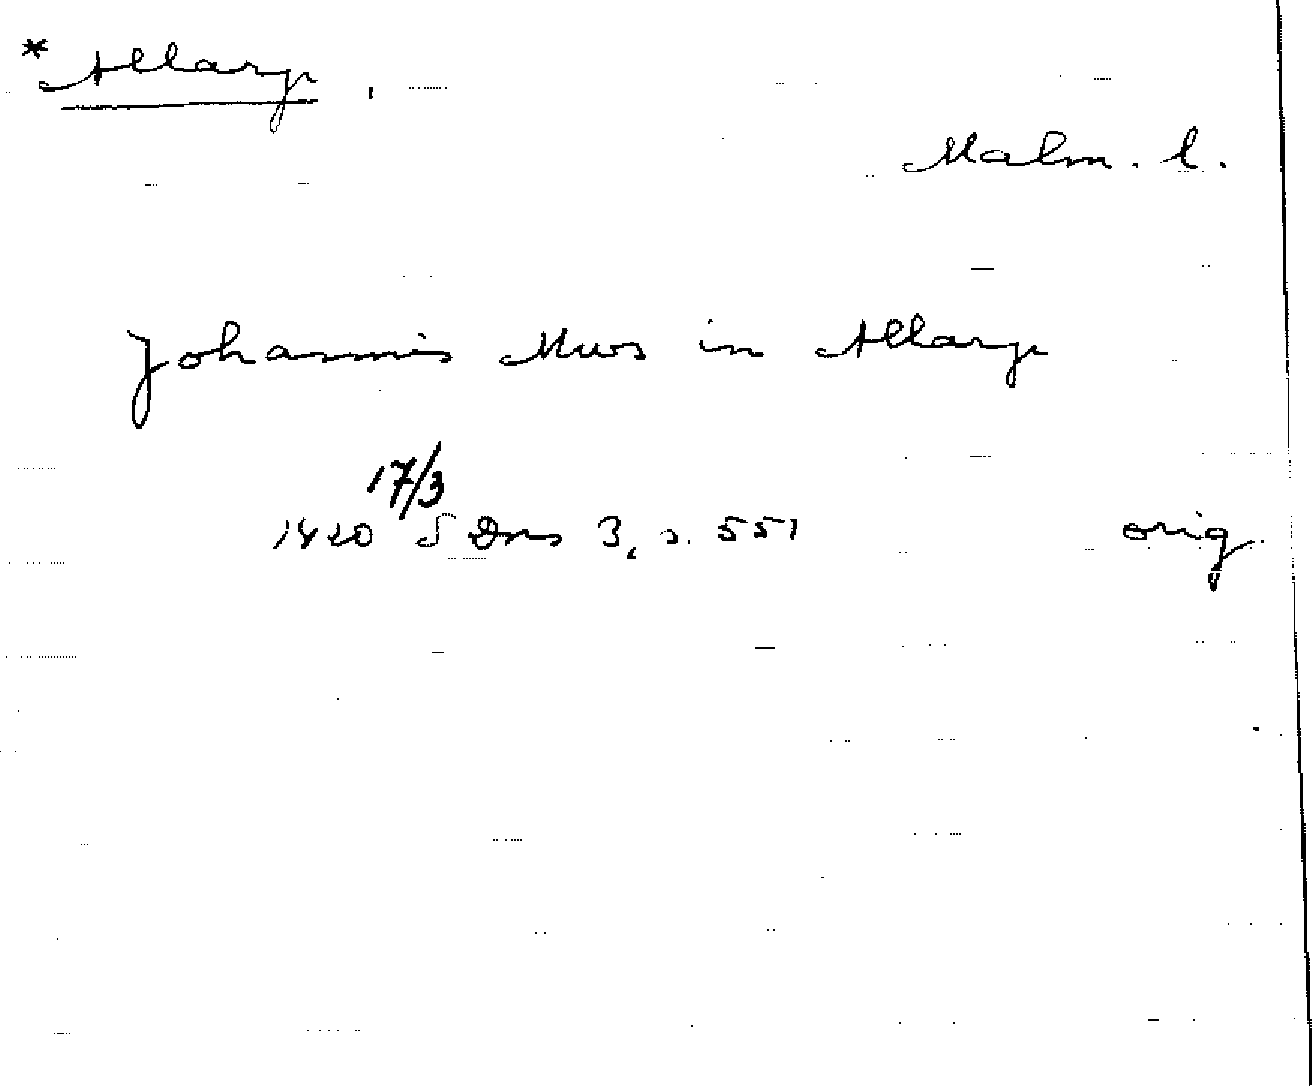 * Allarp
Malm. l.
Johannis Mws in Allarp
17/3
1420 SDns 3, s. 551 orig.